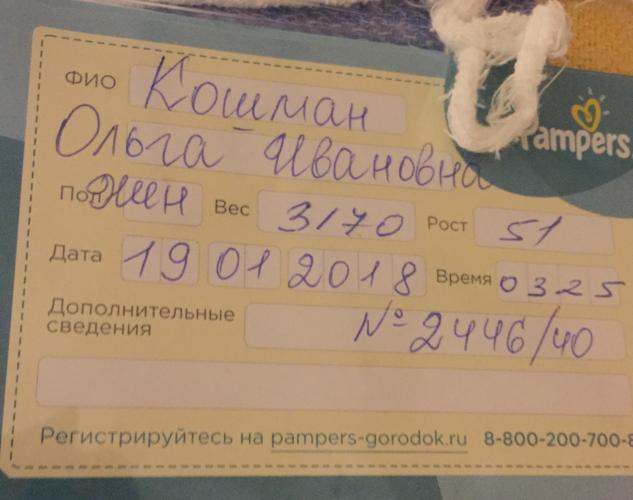 ФИО Кошман
Ольга Ивановна
Pampers
Пол жен Вес 3170 Рост 51
Дата 19 01 2018 Время 0325
Дополнительные
сведения №2446/40
Регистрируйтесь на pampers-gorodok.ru 8-800-200-700-8